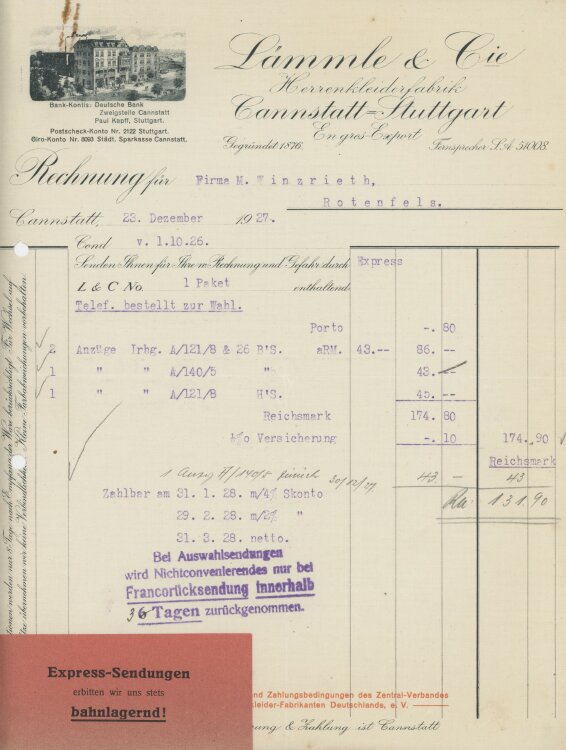 Lämmle & Cie
Herrenkleiderfabrik
Cannstatt=Stuttgart
En gros=Export.
Gegründet 1876.
Fernsprecher S.A. 51008.
Bank-Kontis: Deutsche Bank
Zweigstelle Cannstatt
Paul Kapff, Stuttgart.
Postscheck-Konto Nr. 2122 Stuttgart.
Giro-Konto Nr. 8093 Städt. Sparkasse Cannstatt.
Rechnung für Firma M. Winzrieth,
Rotenfels.
Cannstatt, 23. Dezember 1927.
Cond v. 1.10.26.
Senden Ihnen für Ihre w. Rechnung und Gefahr durch Express
L & C No. 1 Paket enthaltend
Telef. bestellt zur Wahl.
Porto -. 80
2 Anzüge Irhg. A/121/8 & 26 B'S. aRM. 43.-- 86. --
1 " " A/140/5 " 43. --
1 " " A/121/8 H'S. 45. --
Reichsmark 174. 80
Versicherung -. 10 174. 90
Reichsmark
1 Anzug A/140/5 zurück 30/12/27 43 - 43
131.90
Zahlbar am 31. 1. 28. m/4% Skonto
29. 2. 28. m/2% "
31. 3. 28. netto.
Bei Auswahlsendungen
wird Nichtconvenierendes nur bei
Francorücksendung innerhalb
Tagen zurückgenommen.
Express-Sendungen
erbitten wir uns stets
bahnlagernd!
und Zahlungsbedingungen des Zentral-Verbandes
kleider-Fabrikanten Deutschlands, e. V.
& Zahlung ist Cannstatt